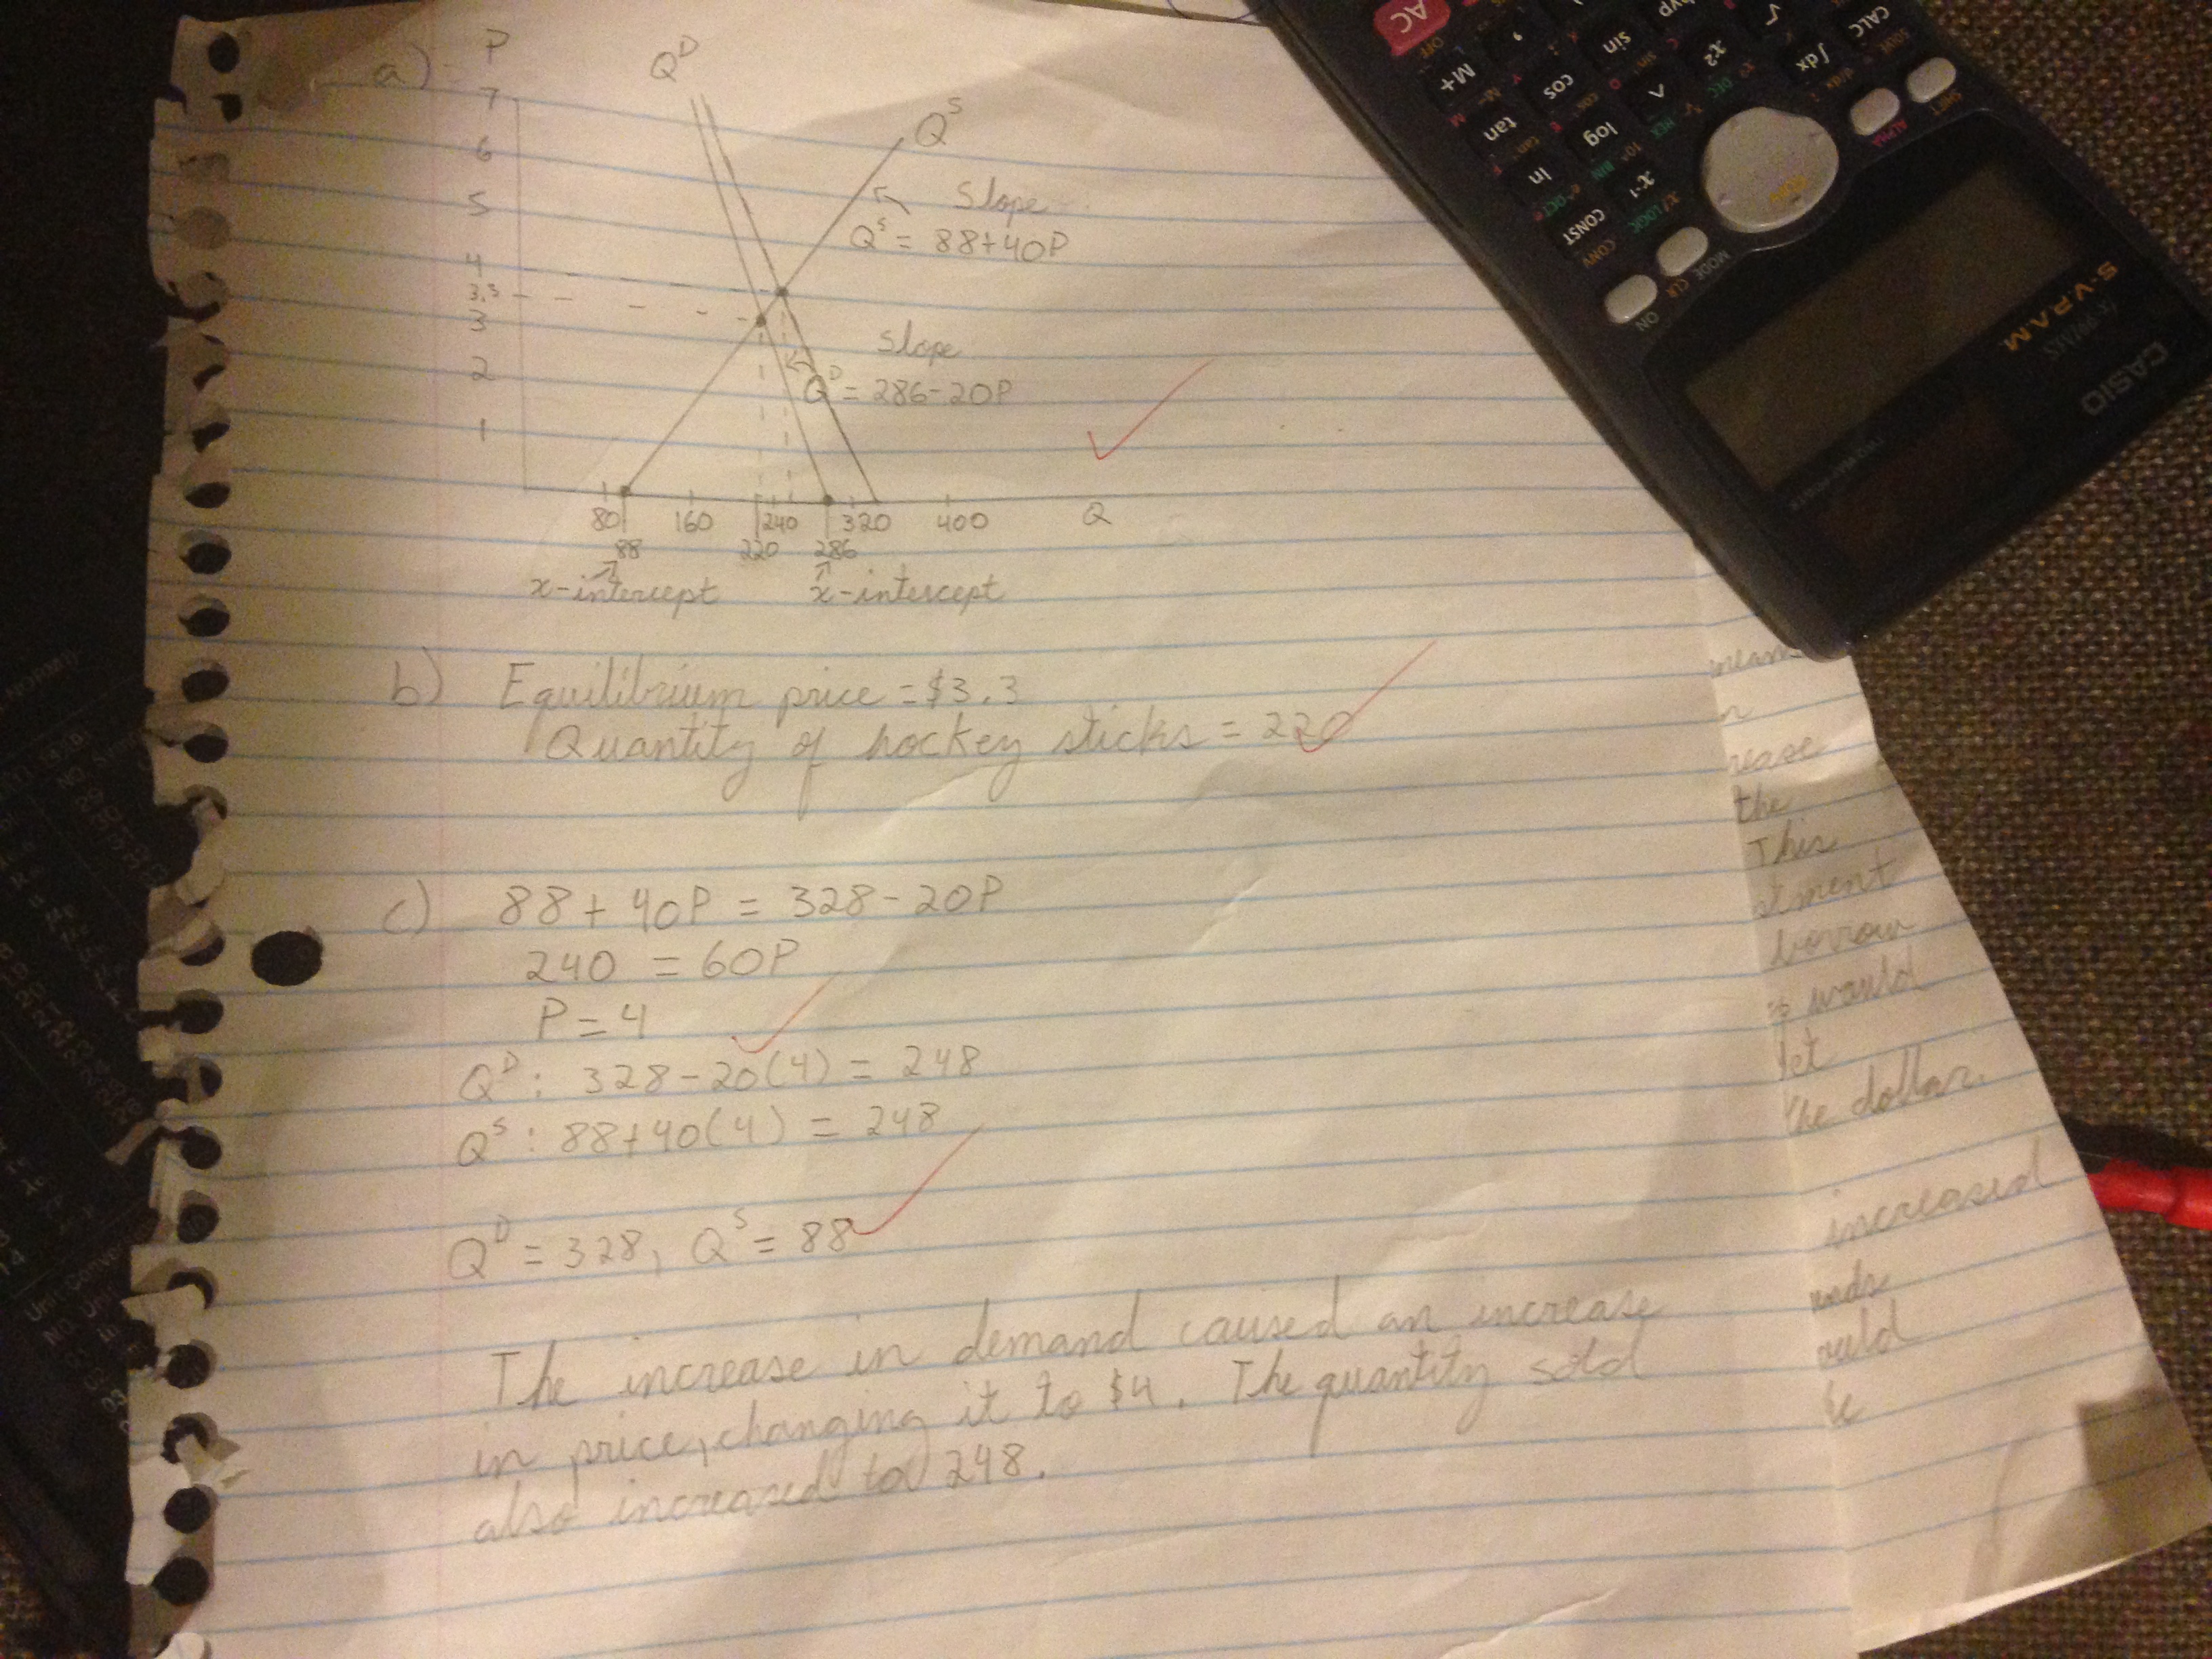 a) P
7
6
5
4
3.3
3
2
1
Q^D
Q^S
Slope
Q^S = 88+40P
Slope
Q^D = 286-20P
80 160 240 320 400 Q
88 220 286
x-intercept x-intercept
b) Equilibrium price = $3.3
Quantity of hockey sticks = 220
c) 88 + 40P = 328 - 20P
240 = 60P
P = 4
Q^D : 328-20(4) = 248
Q^S : 88+40(4) = 248
Q^D = 328, Q^S = 88
The increase in demand caused an increase
in price, changing it to $4. The quantity sold
also increased to 248.
rease
the
This
stment
borrow
would
let
the dollar.
increased
ould
be
AC
OFF
M+
M-
,
sin
hyp
√
x²
CALC
SOLVE
∫dx
d/dx
cos
^
tan
log
ln
x-1
CONST
CONV
DEC
HEX
BIN
OCT
LOGIC
SHIFT
ALPHA
MODE CLR
ON
S-V.P.A.M.
CASIO